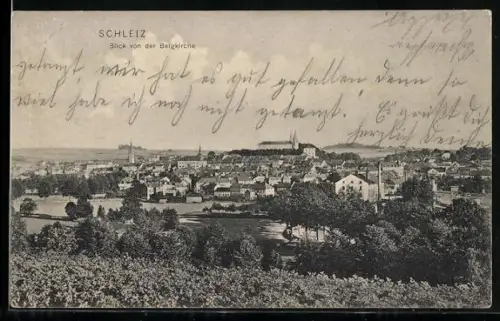 SCHLEIZ
Blick von der Bergkirche
getanzt, mir hat es gut gefallen denn so
viel habe ich noch nicht getanzt. Es grüßt dich
herzlich deine